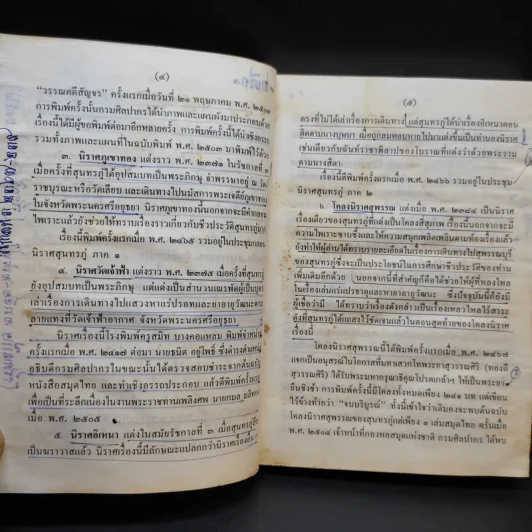 (๔)
"วรรณคดีสัญจร" ครั้งแรกเมื่อวันที่ ๒๑ พฤษภาคม พ.ศ. ๒๕๐๓
การพิมพ์ครั้งนั้นกรมศิลปากรได้ทำภาพและแผนผังมาประกอบด้วย
เรื่องนี้ได้มีผู้ขอพิมพ์ต่อมาอีกหลายครั้ง การพิมพ์ครั้งนี้ได้นำ
รวมทั้งภาพและแผนที่ในฉบับพิมพ์ พ.ศ. ๒๕๐๓ มาพิมพ์ไว้ด้วย
๓. นิราศภูเขาทอง แต่งราว พ.ศ. ๒๓๗๑ ในรัชกาลที่
เมื่อครั้งที่สุนทรภู่ได้อุปสมบทเป็นพระภิกษุ จำพรรษาอยู่ ณ
ราชบุรณะหรือวัดเลียบ และเดินทางไปนมัสการพระเจดีย์ภูเขาทอง
ในจังหวัดพระนครศรีอยุธยา นิราศภูเขาทองนี้นอกจากจะมีคำกลอน
ไพเราะแล้วยังช่วยให้ทราบเรื่องราวเกี่ยวกับชีวประวัติสุนทรภู่
เรื่องนี้พิมพ์ครั้งแรกเมื่อ พ.ศ. ๒๔๖๕ รวมอยู่ในประชุม
นิราศสุนทรภู่ ภาค ๑
๔. นิราศวัดเจ้าฟ้า แต่งราว พ.ศ. ๒๓๗๕ เมื่อครั้งที่สุนทรภู่
ยังอุปสมบทเป็นพระภิกษุ แต่แต่งเป็นสำนวนเณรพัดผู้เป็นบุตร
เล่าเรื่องการเดินทางไปแสวงหาแร่ปรอทและยาอายุวัฒนะตาม
ลายแทงที่วัดเจ้าฟ้าอากาศ จังหวัดพระนครศรีอยุธยา
นิราศเรื่องนี้โรงพิมพ์ครูสมิท บางคอแหลม พิมพ์จำหน่าย
ครั้งแรกเมื่อ พ.ศ. ๒๔๑๗ ต่อมา นายธนิต อยู่โพธิ์ ซึ่งดำรงตำแหน่ง
อธิบดีกรมศิลปากรในขณะนั้นได้ตรวจสอบชำระจากต้นฉบับ
หนังสือสมุดไทย และทำเชิงอรรถประกอบ แล้วตีพิมพ์ครั้งแรก
เพื่อเป็นที่ระลึกเนื่องในงานพระราชทานเพลิงศพ
เมื่อ พ.ศ. ๒๕๐๕
๕. นิราศอิเหนา แต่งในสมัยรัชกาลที่ ๓ เมื่อสุนทรภู่
เป็นฆราวาสแล้ว นิราศเรื่องนี้มีลักษณะแปลกกว่านิราศเรื่อง
(๕)
ตรงที่ไม่ได้เล่าเรื่องการเดินทาง แต่สุนทรภู่ได้นำเรื่องอิเหนาตอน
ติดตามนางบุษบา เมื่อถูกลมหอบหายไปมาแต่งขึ้นเป็นทำนองนิราศ
เช่นเดียวกับฉันท์ราชาพิลาปของโบราณที่แต่งว่าด้วยพระราม
ตามนางสีดา
เรื่องนี้ตีพิมพ์ครั้งแรกเมื่อ พ.ศ. ๒๔๖๖ รวมอยู่ในประชุม
นิราศสุนทรภู่ ภาค ๒
๖. โคลงนิราศสุพรรณ แต่งเมื่อ พ.ศ. ๒๓๘๔ เป็นนิราศ
เรื่องเดียวของสุนทรภู่ที่แต่งเป็นโคลงสี่สุภาพ เรื่องนี้นอกจากจะมี
ความไพเราะซาบซึ้งและให้ความสนุกเพลิดเพลินตามท้องเรื่องแล้ว
ยังทำให้ผู้อ่านได้ทราบรายละเอียดในเรื่องการเดินทางไปสุพรรณบุรี
ของสุนทรภู่ ซึ่งจะเป็นประโยชน์ในการศึกษาชีวประวัติของท่าน
เพิ่มเติมอีกด้วย นอกจากนี้ที่สำคัญก็คือได้ช่วยให้ผู้ที่หลงไหล
ในเรื่องเล่นแร่แปรธาตุและหายาอายุวัฒนะ ซึ่งปัจจุบันนี้ก็ยังมี
ผู้เชื่อว่ามี ได้ทราบว่าเรื่องดังกล่าวเป็นเรื่องเหลวไหลไร้สาระ
ดังที่สุนทรภู่ได้แถลงไว้ชัดเจนแล้วในตอนสุดท้ายของโคลงนิราศ
เรื่องนี้
โคลงนิราศสุพรรณนี้ได้พิมพ์ครั้งแรกเมื่อ พ.ศ. ๒๔๖๗
แจกเป็นอนุสรณ์ในโอกาสที่มหาเสวกโทพระยาสวรรยศิริ
สุวรรณศิริ) ได้รับพระมหากรุณาธิคุณโปรดเกล้าฯ ให้เป็นพระยา
ยืนชิงช้า การพิมพ์ครั้งนี้มีโคลงทั้งหมดเพียง ๒๔๑ บท แต่เขียน
ไว้ข้างท้ายว่า "จบบริบูรณ์" ทั้งนี้เข้าใจว่าเดิมคงจะพบต้นฉบับ
โคลงนิราศสุพรรณของสุนทรภู่แต่เพียง ๑ เล่มสมุดไทย ครั้นใน
พ.ศ. ๒๕๐๔ เจ้าหน้าที่กองหอสมุดแห่งชาติ กรมศิลปากร ได้พบ